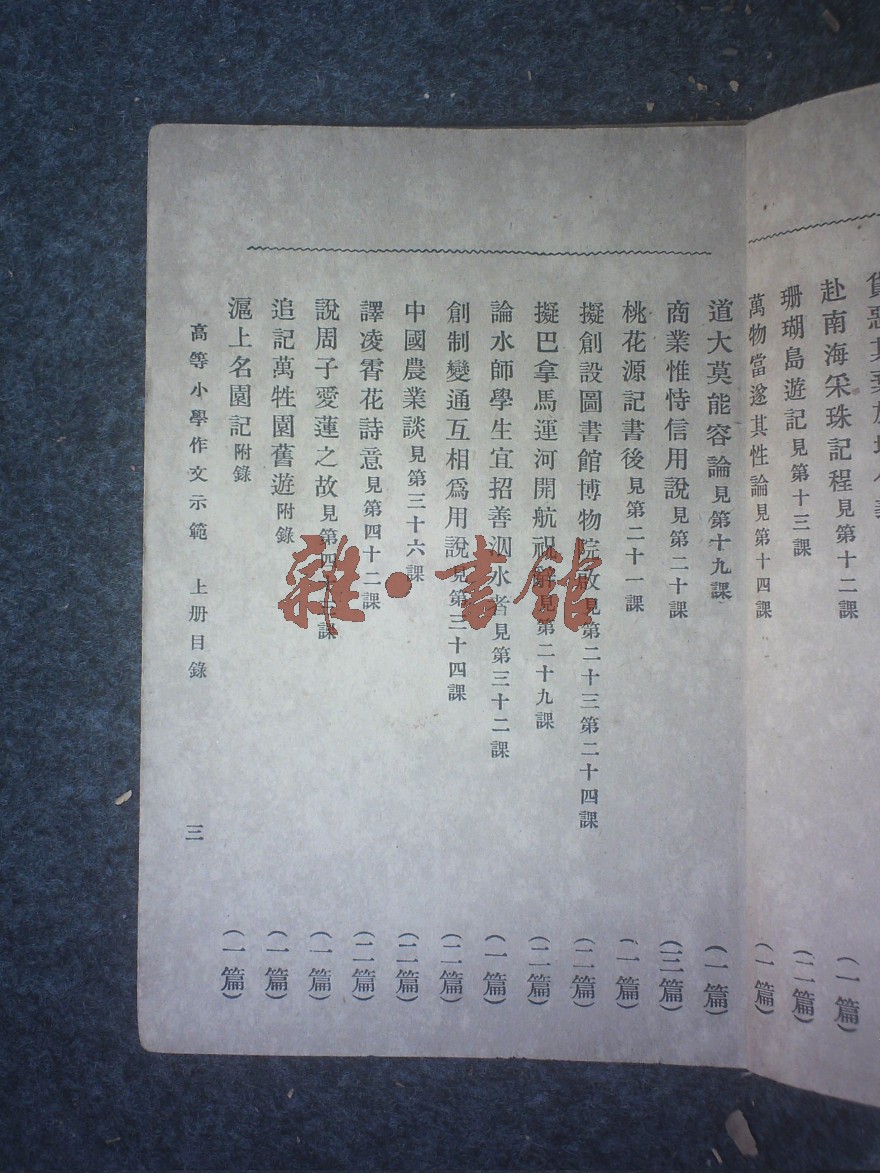 赴南海采珠記程見第十二課 (一篇)
珊瑚島遊記見第十三課 (二篇)
萬物當遂其性論見第十四課 (一篇)
道大莫能容論見第十九課 (一篇)
商業惟恃信用說見第二十課 (三篇)
桃花源記書後見第二十一課 (一篇)
擬創設圖書館博物院啟見第二十三第二十四課 (二篇)
擬巴拿馬運河開航祝辭見第二十九課 (二篇)
論水師學生宜招善泅水者見第三十二課 (一篇)
創制變通互相爲用說見第三十四課 (二篇)
中國農業談見第三十六課 (二篇)
譯凌霄花詩意見第四十二課 (二篇)
說周子愛蓮之故見第四十三課 (一篇)
追記萬牲園舊遊附錄 (一篇)
滬上名園記附錄 (一篇)
高等小學作文示範 上册目錄 三
雜·書館